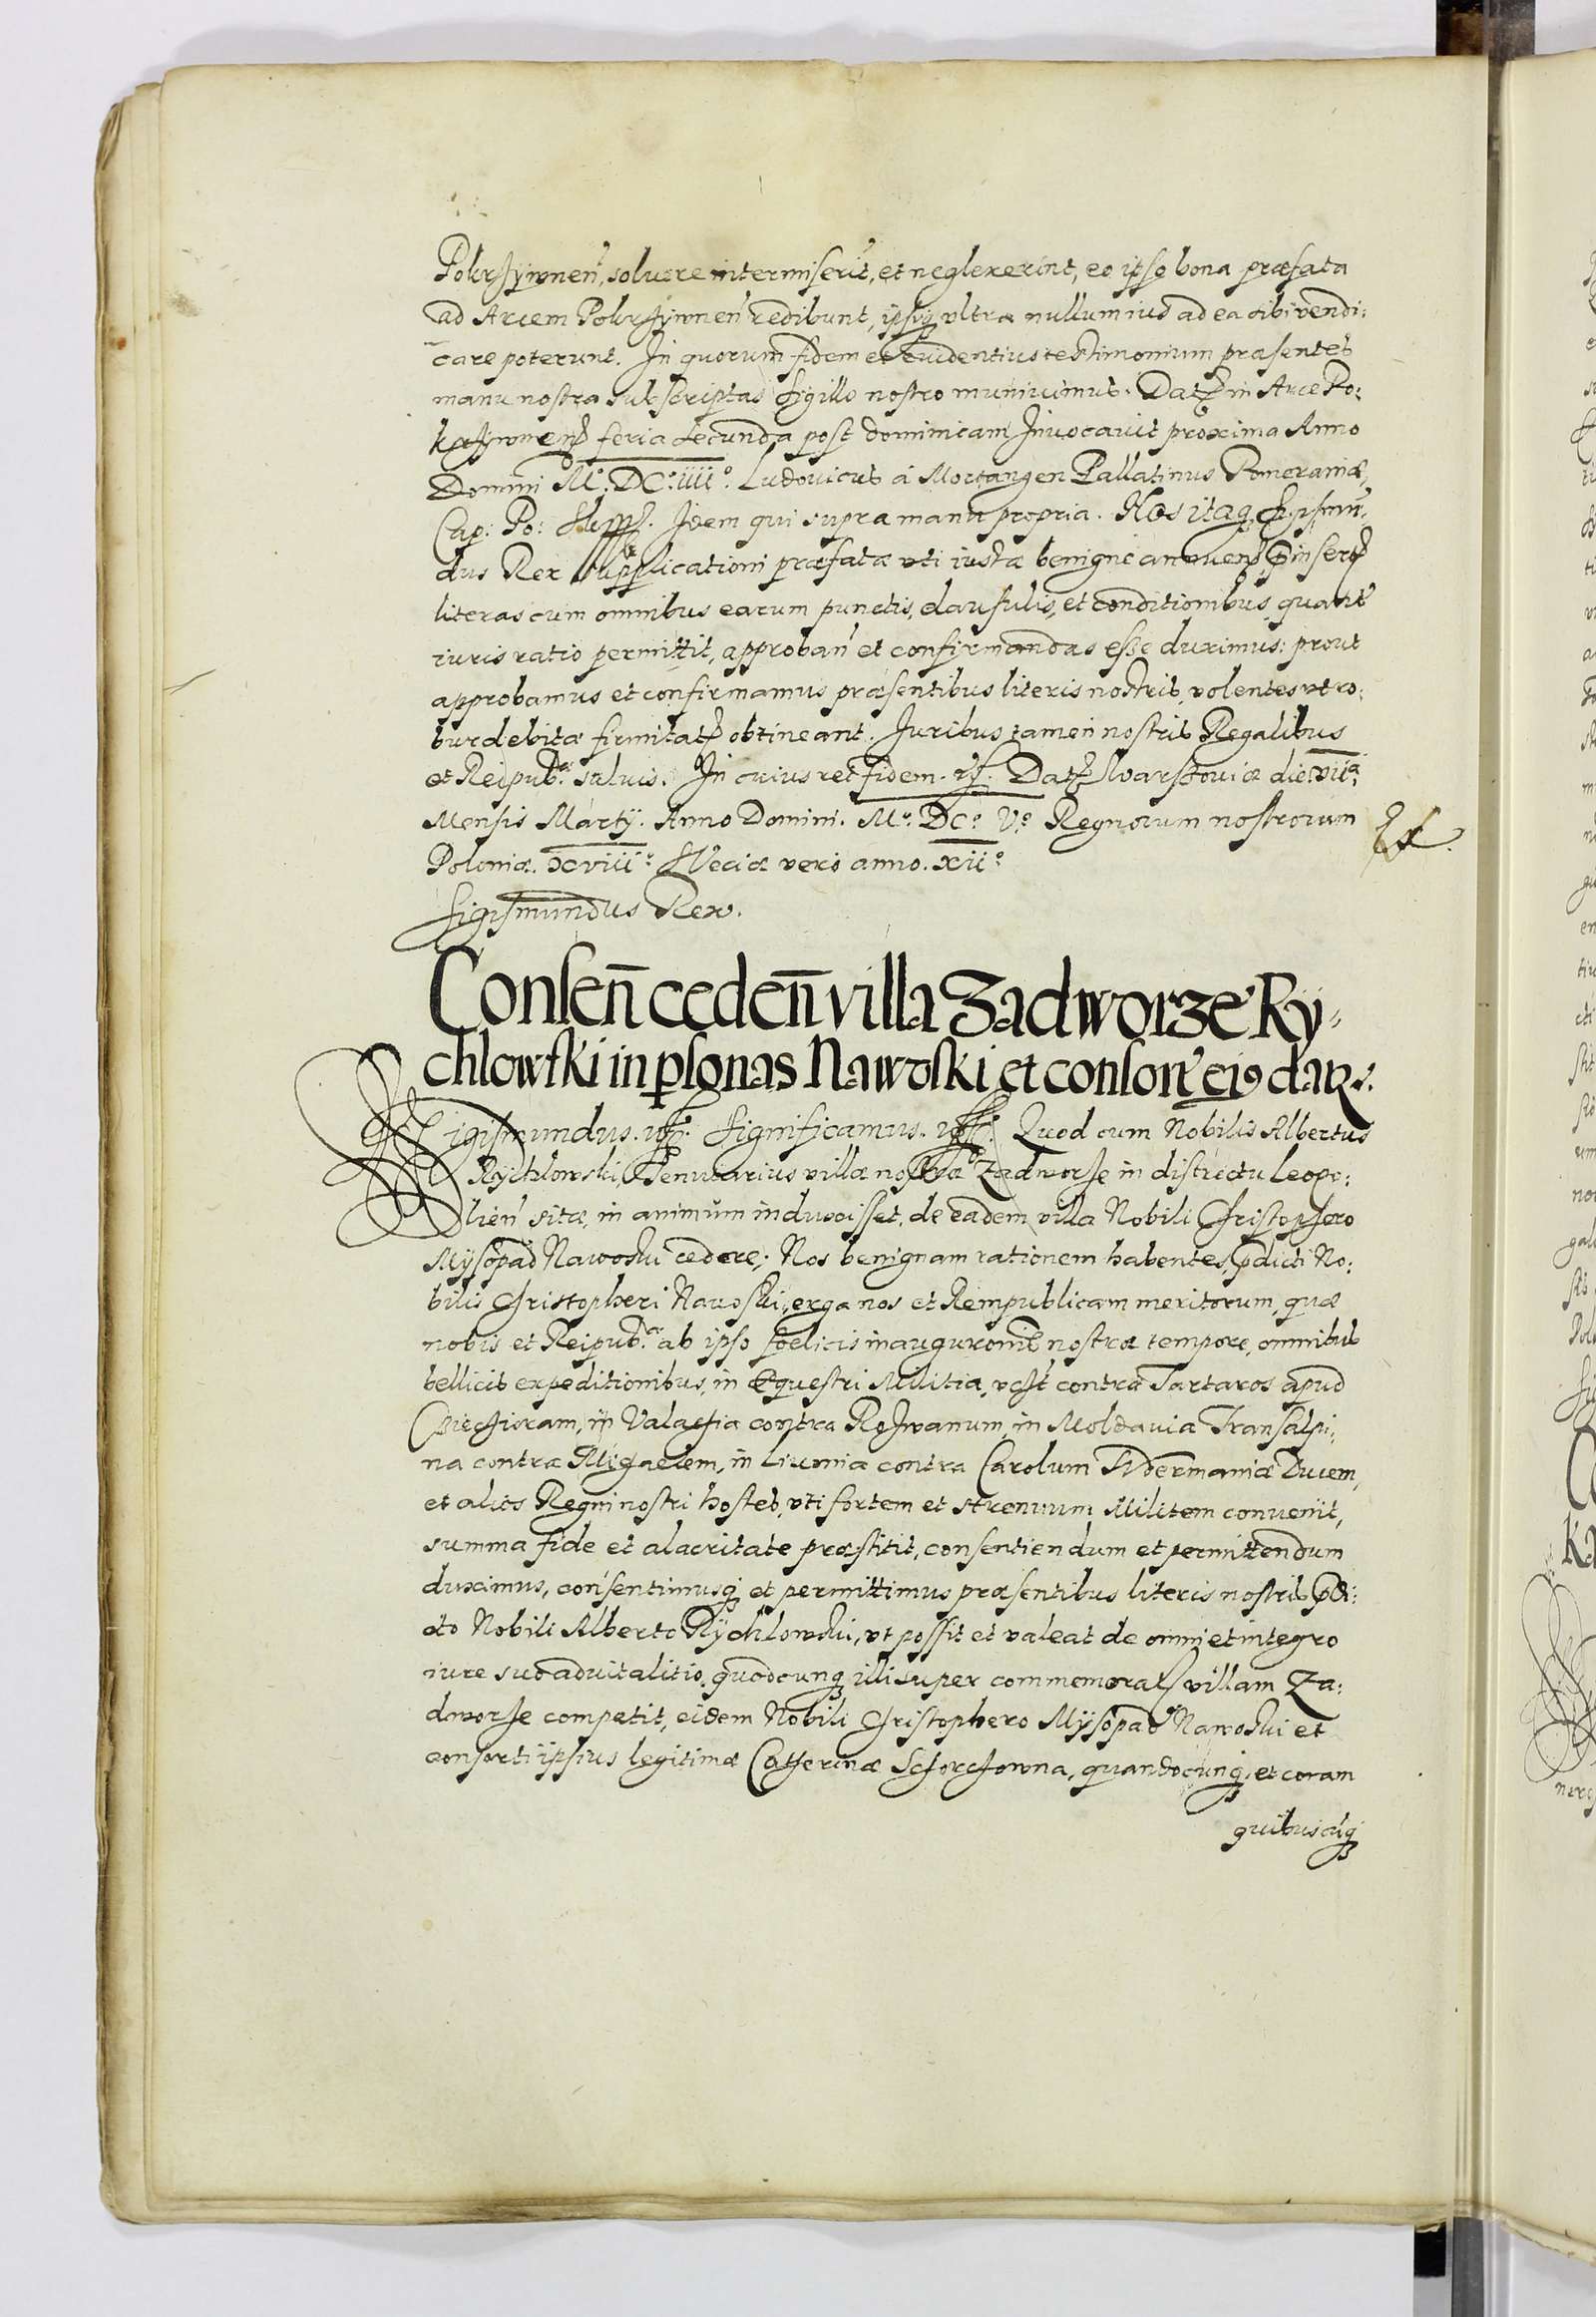 Pokrzywnen̄, solvere intermiserit, et neglexerint, eo ipso bona præfata
ad Arcem Pokrzywnen̄ redibunt, ipsiq; vltra nullum ius ad ea sibi vendi:
care poterunt. In quorum fidem et euidentius testimonium præsentes
manu nostra subscriptas sigillo nostro muniuimus. Dat in Arce Po:
krzywnen feria secunda post dominicam Inuocauit proxima Anno
Domini M.º DC.º iiii.º Ludouicus á Mortangen Pallatinus Pomeraniæ,
Cap: Po: Idem qui supra manu propria. Nos itaq; Sigismū:
dus Rex supplicationi præfatæ vti iustæ benigne annuen, p̄insert
literas cum omnibus earum punctis, clausulis, et conditionibus, quant̄
iuris ratio permittit, approban̄ et confirmandas esse duximus: prout
approbamus et confirmamus præsentibus literis nostris, volentes vt ro:
bur debitæ firmitat obtineant. Juribus tamen nostris Regalibus
et Reipub.æ saluis. In cuius rei fidem. Dat Warszouiæ die. vii.ª
Mensis Martÿ. Anno Domini. M.º DC.º V.º Regnorum nostrorum
Poloniæ. xviii.º Sveciæ vero anno. xii.º
Sigismundus Rex.
Consen̄ ceden̄ villa Zadworze Rÿ:
chlowski in p̱sonas Nawoski et consort̄ ei9 dar.
Sigismundus. Significamus. Quod cum Nobilis Albertus
Rÿchlowski, Tenutarius villæ nostræ Zadworze in districtu Leopo:
lien̄ sitæ, in animum induxisset, de eadem villa Nobili Christophero
Mÿsopad Nawoski cedere; Nos benignam rationem habentes, p̄dicti No:
bilis Christopheri Nawoski, erga nos et Rempublicam meritorum, quæ
nobis et Reipub.æ ab ipso fœlicis inaugurōnis nostræ tempore, omnibus
bellicis expeditionibus, in Equestri Militia, vcz̄t contra Tartaros apud
Ciecioram, in Valachia contra Rozwanum, in Moldauia Transalpi:
na contra Michaelem, in Liuonia contra Carolum Sudermaniæ Ducem,
et alios Regni nostri hostes, vti fortem et strenuum Militem conuenit,
summa fide et alacritate præstitit, consentiendum et permittendum
duximus, consentimusq; et permittimus præsentibus literis nostris p̄di:
cto Nobili Alberto Rÿchlowski, vt possit et valeat de omni et integro
iure suo aduitalitio, quodcunq; illi super commemorat villam Za:
dworze competit, eidem Nobili Christophero Mÿsopad Nawoski et
consorti ipsius legitimæ Catherinæ, quandocunq; et coram
quibuscūq;